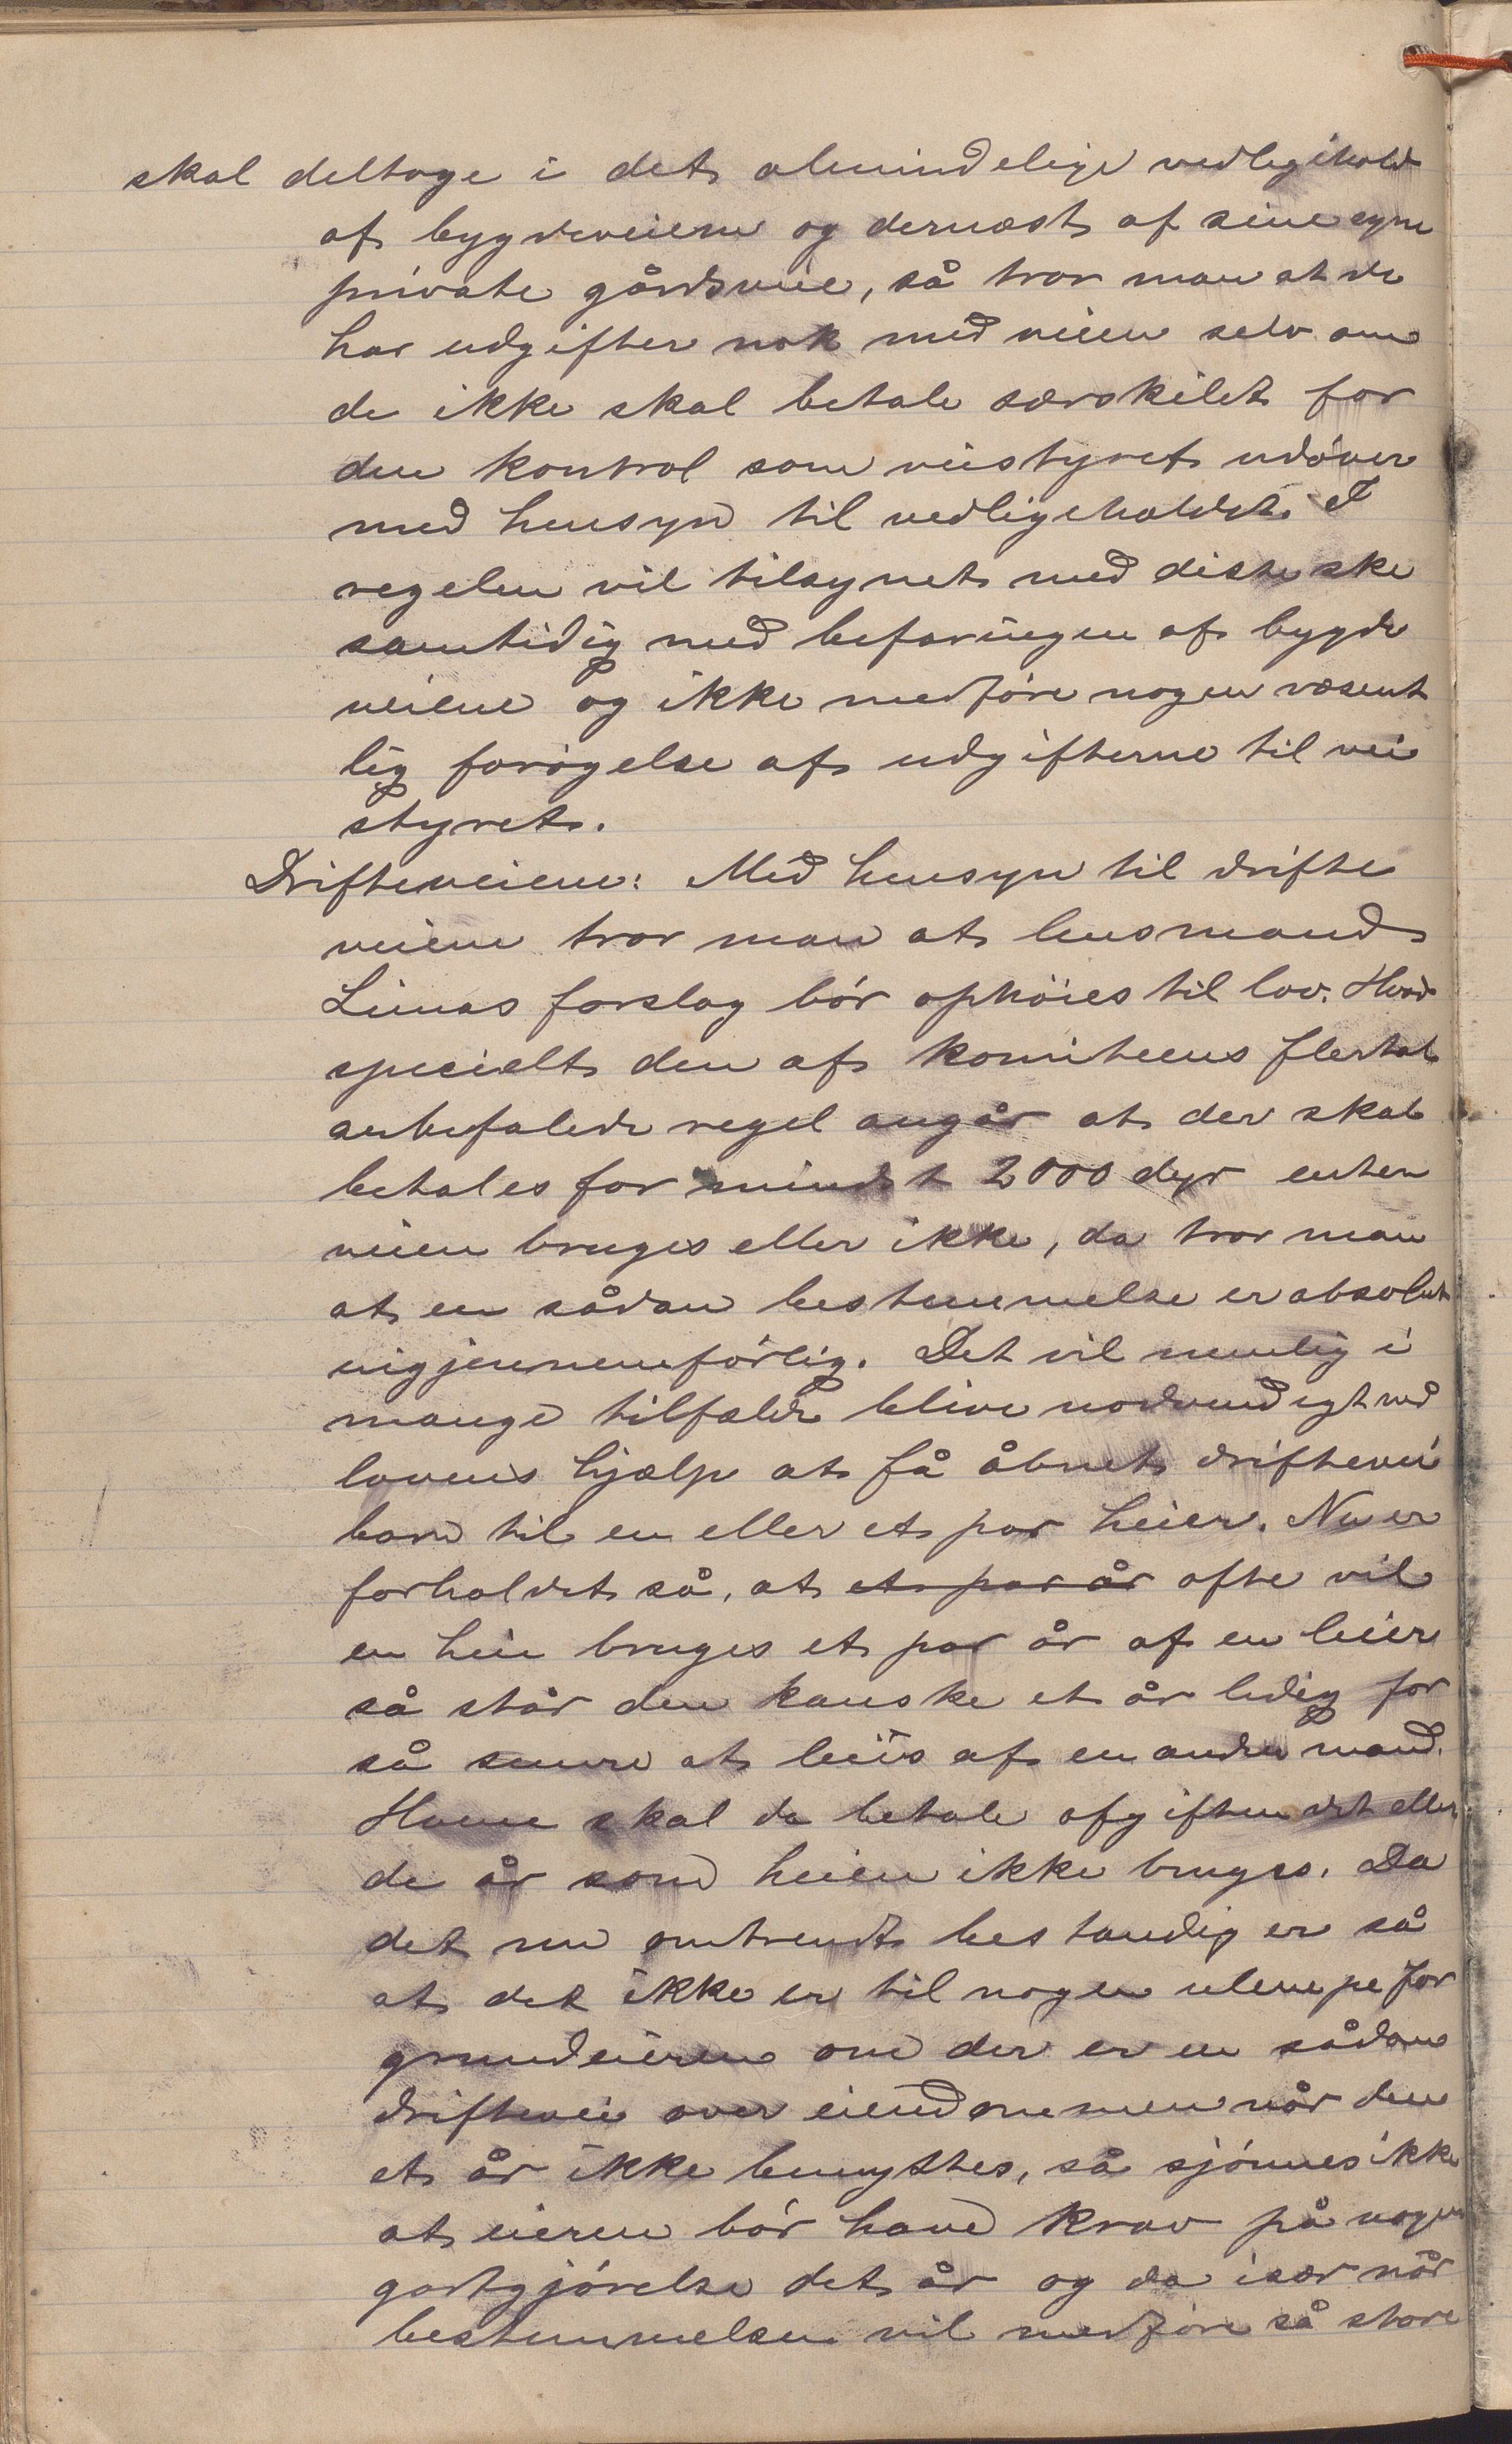 skal deltage i det almindelige vedligehold
af bygdeveiene og dernæst af sine egne
private gårdsveie, så tror man at de
har udgifter nok med veien selv om
de ikke skal betale særskilet for
den kontrol som veistyret udöver
med hensyn til vedligeholdet. I
regelen vil tilsynet med disse ske
samtidig med befaringen af bygde
veiene og ikke medföre nogen væsent
lig forögelse af udgifterne til vei
styret.
Drifteveiene: Med hensyn til drifte
veiene tror man at lensmand
Limas forslag bör ophöies til lov. Hvad
specielt den af komiteens flertal
anbefalede regel angår at der skal
betales for mindst 2000 dyr enten
veien bruges eller ikke, da tror man
at en sådan bestemmelse er absolut
uigjennemförlig. Det vil nemlig i
mange tilfælde blive nodvendigt ved
lovens hjælp at få åbnet driftevei
bare til en eller et par heier. Nu er
forholdet så, at et par år ofte vil
en hei bruges et par år af en leier
så står den kanske et år ledig for
så senere at leiis af en anden mand.
Hvem skal da betale afgiften det eller
de år som heien ikke bruges. Da
det nu omtrendt bestandig er så
at det ikke er til nogen ulempe for
grundeieren om der er en sådan
driftevei over eiendommen når den
et år ikke benyttes, så sjönnes ikke
at eieren bör have krav på nogen
godtgjörelse det år og da især når
bestemmelsen vil medföre så store